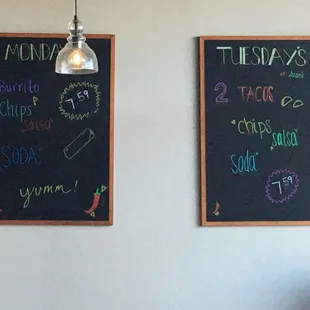 MONDA
Burrito
7 59
Chips
Salsa
SODA
yumm!
TUESDAY'S
2 TACOS
chips
salsa
soda
7 59